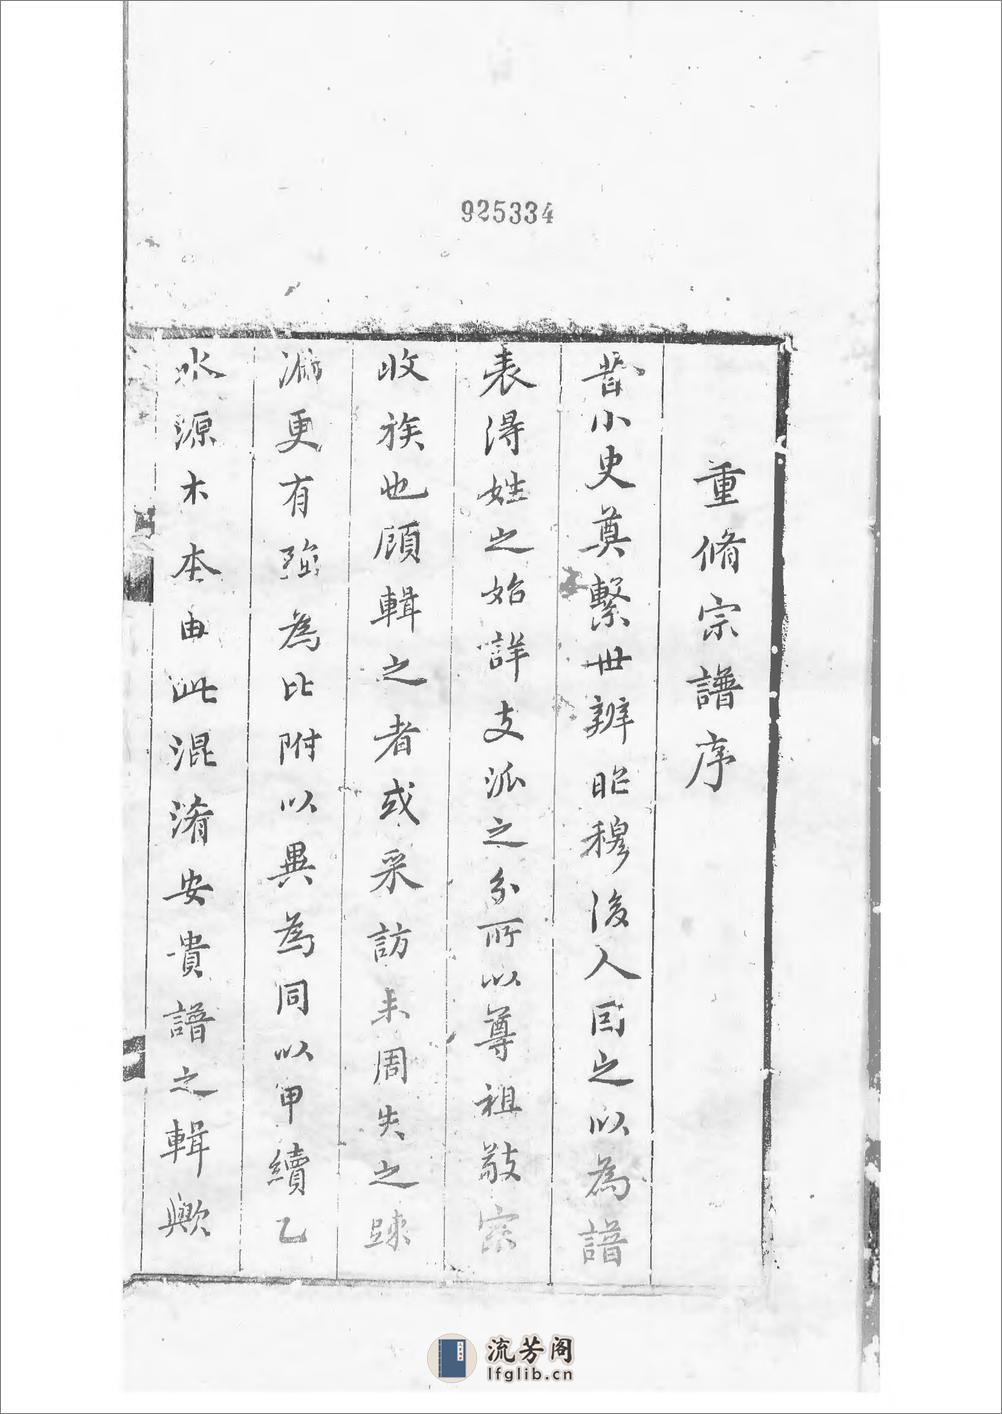 925334
重脩宗譜序
昔小史奠繫世辨昭穆後人因之以為譜
表得姓之始詳支派之分所以尊祖敬宗
收族也顧輯之者或采訪未周失之踈
漏更有強為比附以異為同以甲續乙
水源木本由此混淆安貴譜之輯歟
流芳阁
lfglib.cn